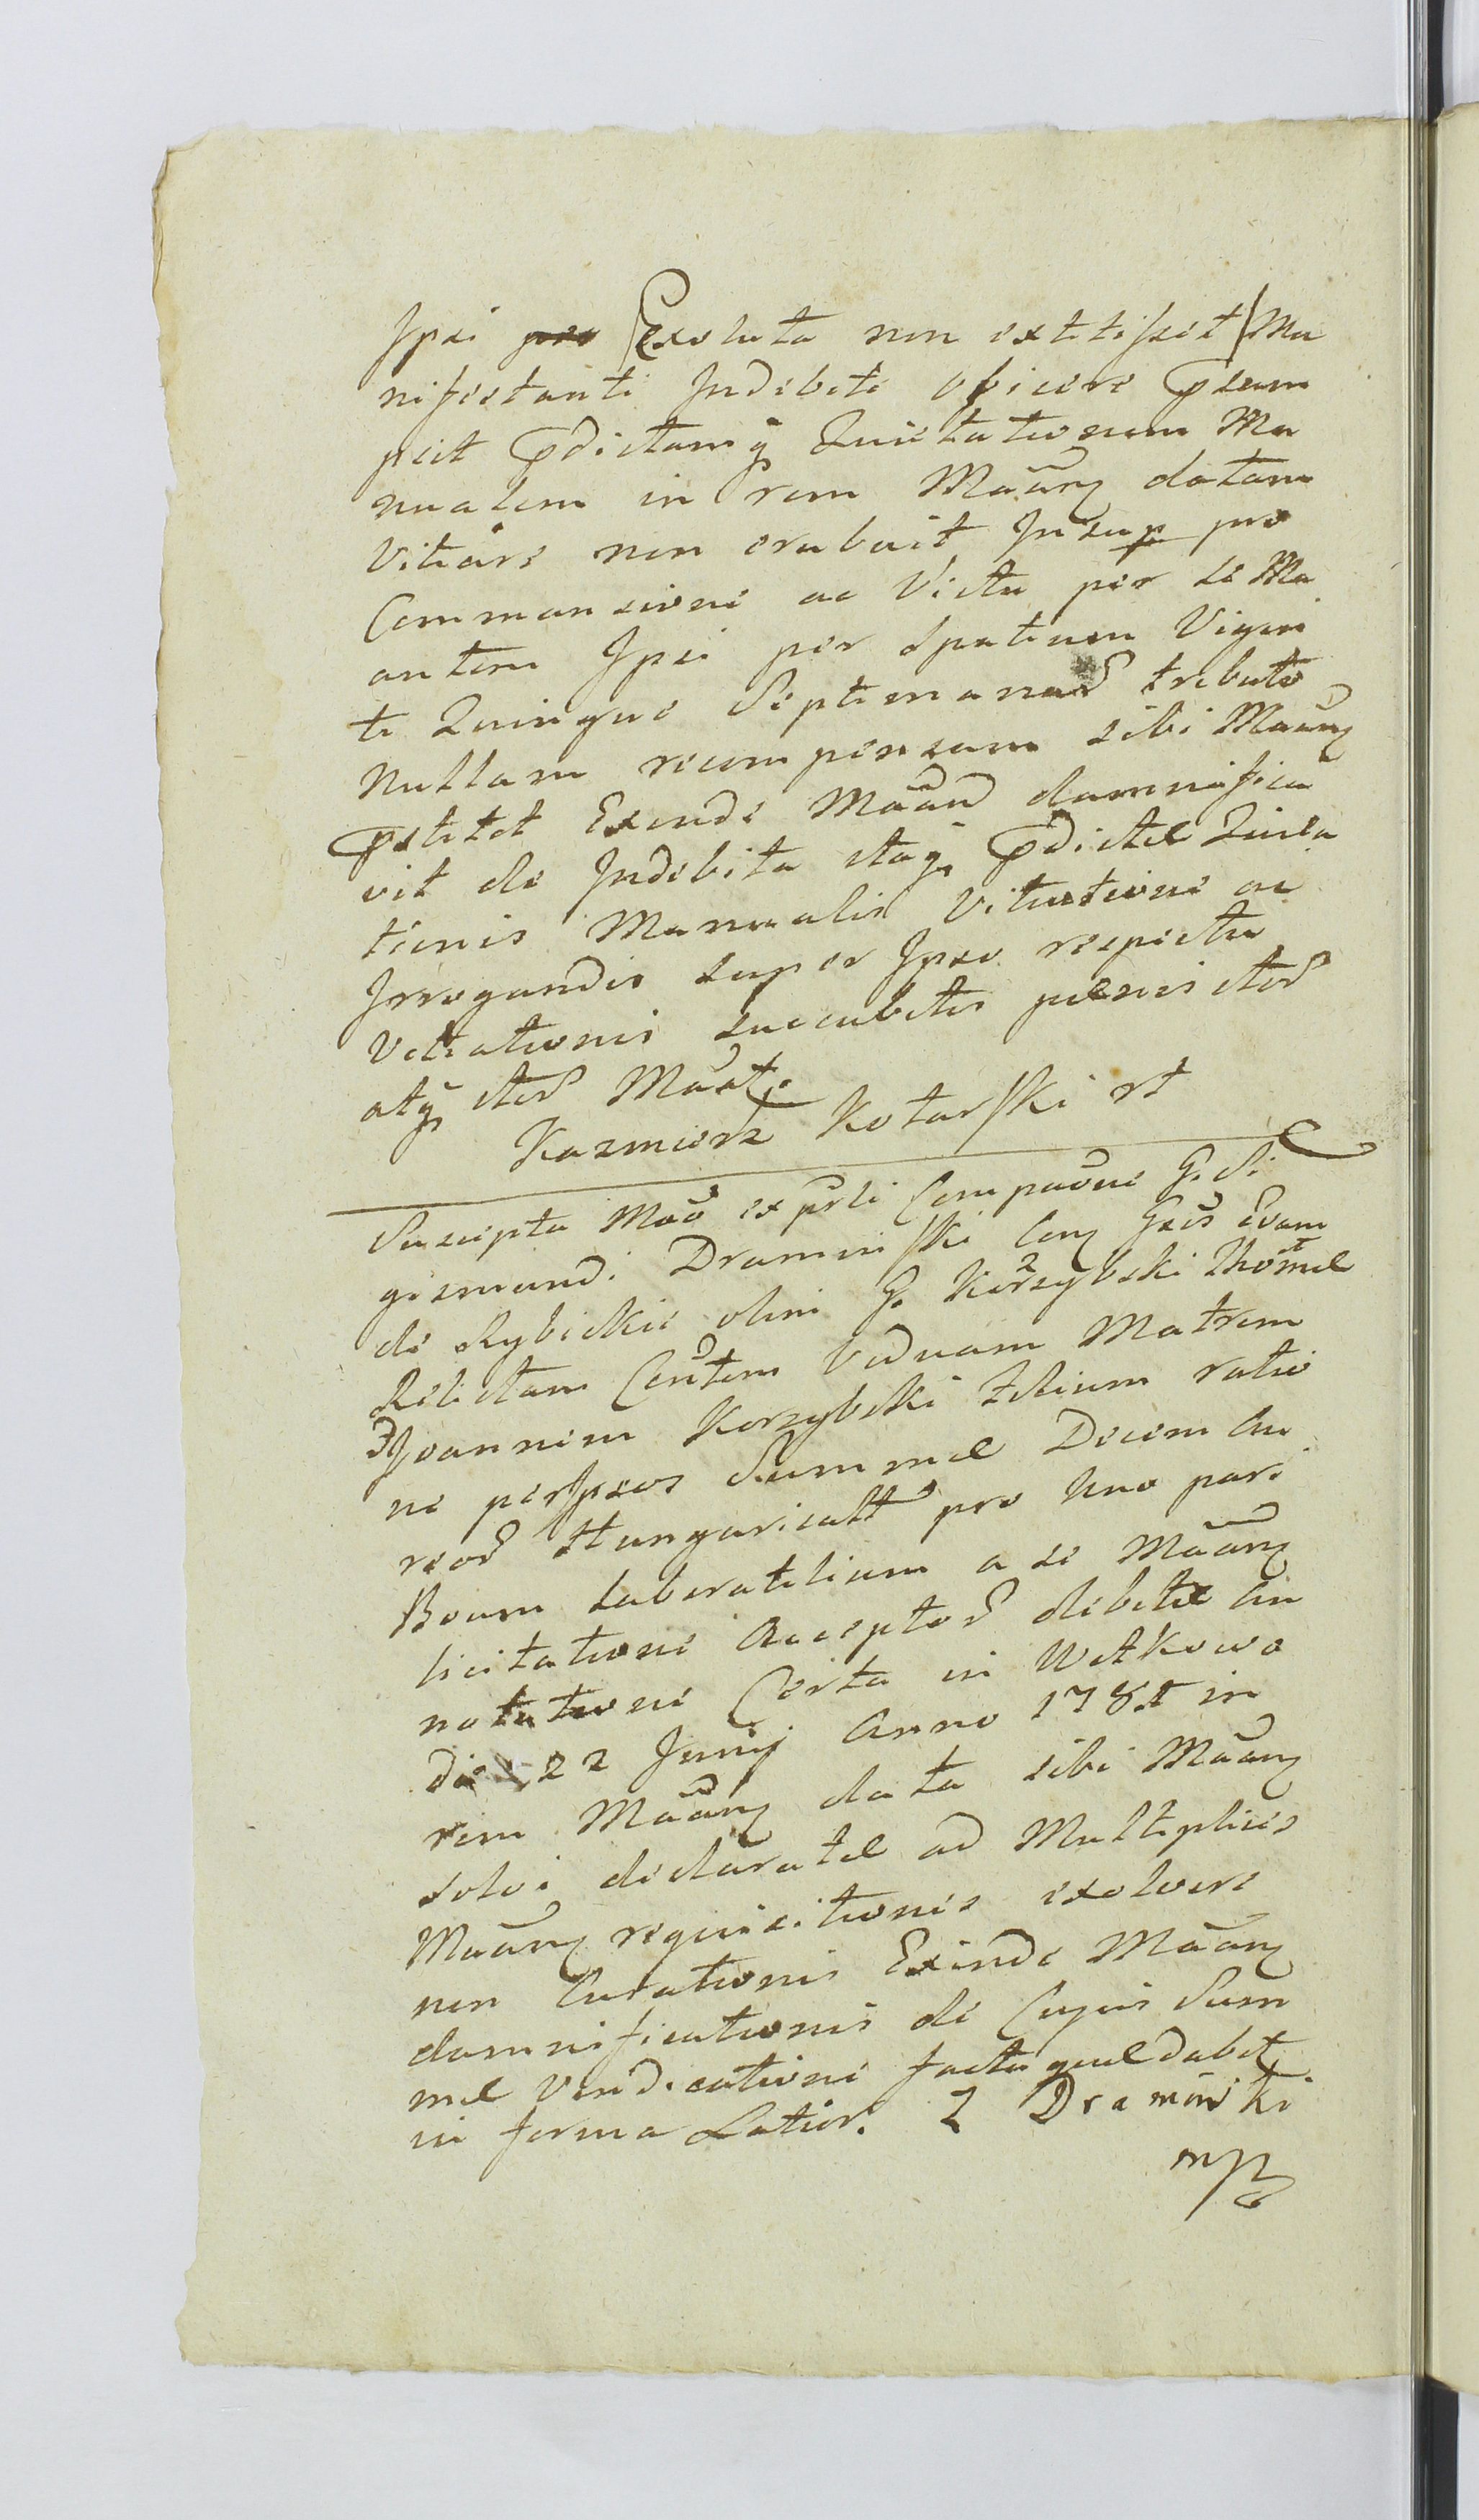 Ipsi pro Exoluta non extitisset Ma
nifestanti Indebite obicere Psum
psit Pdictamq Quietationem Ma
nualem in rem Maãng datam
Vitiare non erubuit Insup pro
Commansione ac Victu per se Ma
antem Ipsi per spatium Vigin
ti Quinque Septimanar tributo
Nullam recompensam sibi Maãng
Pstitit Exinde Maãnd damnifica
vit de Indebita itaq Pdictae Quieta
tionis Manualis Vitiatione ac
Irrogandis super Ipso respectu
Vitiationis succubitis paenis itp
atq itp Maãt.
Kazmierz Kotarski rt
Suscepta Mão ex prti Compaõne G. Si
gismundi Draminski Con Gsũ Evam
de Rybickie olim G. Korzybski Thomae
Relictam Cõntem Viduam Matrem
Joannem Korzybski Filium ratio
ne per Ipsos Summae Decem Au
reor Hungaricalt pro Uno pari
Boum Laboratilium a se Maãng
licitatione Acceptor debitae An
notatione Certa in Witkowo
Die 22 Junij Anno 1781 in
rem Maãng data sibi Maãng
solvi declaratae ad Multiplices
Maãng requisitionis exolvere
non Curationis Exinde Maãng
damnificationis de Cujus Sum
mae Vendicatione facta quae dabit
in forma Latior. Z Draminski
mp